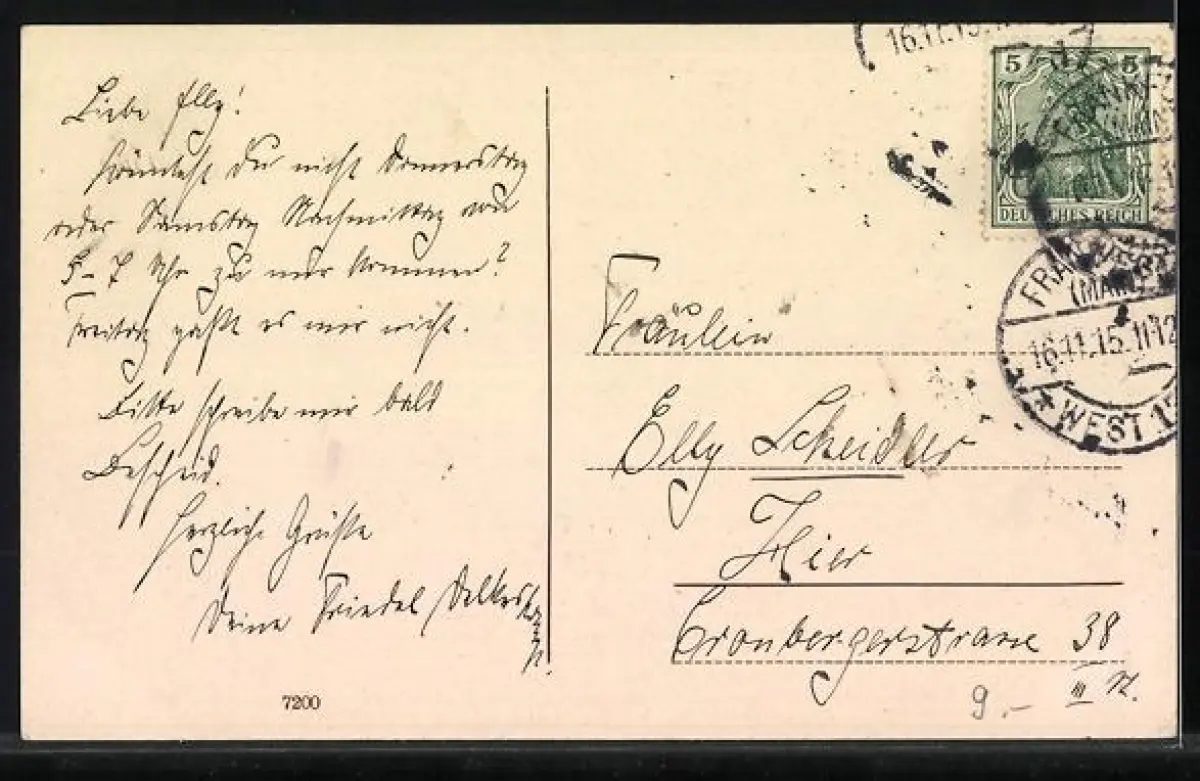 Liebe Elly!
Könntest Du nicht Donnerstag
oder Samstag Nachmittag von
5–7 Uhr zu mir kommen?
Freitag paßt es mir nicht.
Bitte schreibe mir bald
Bescheid.
Herzliche Grüße
Deine Friedel
7200
16.11.15.11-12
5 5
DEUTSCHES REICH
FRANKFURT
(MAIN)
16.11.15.11-12
* WEST 13
Fräulein
Elly Scheidler
Hier
Cronbergerstrasse 38
III
9.-